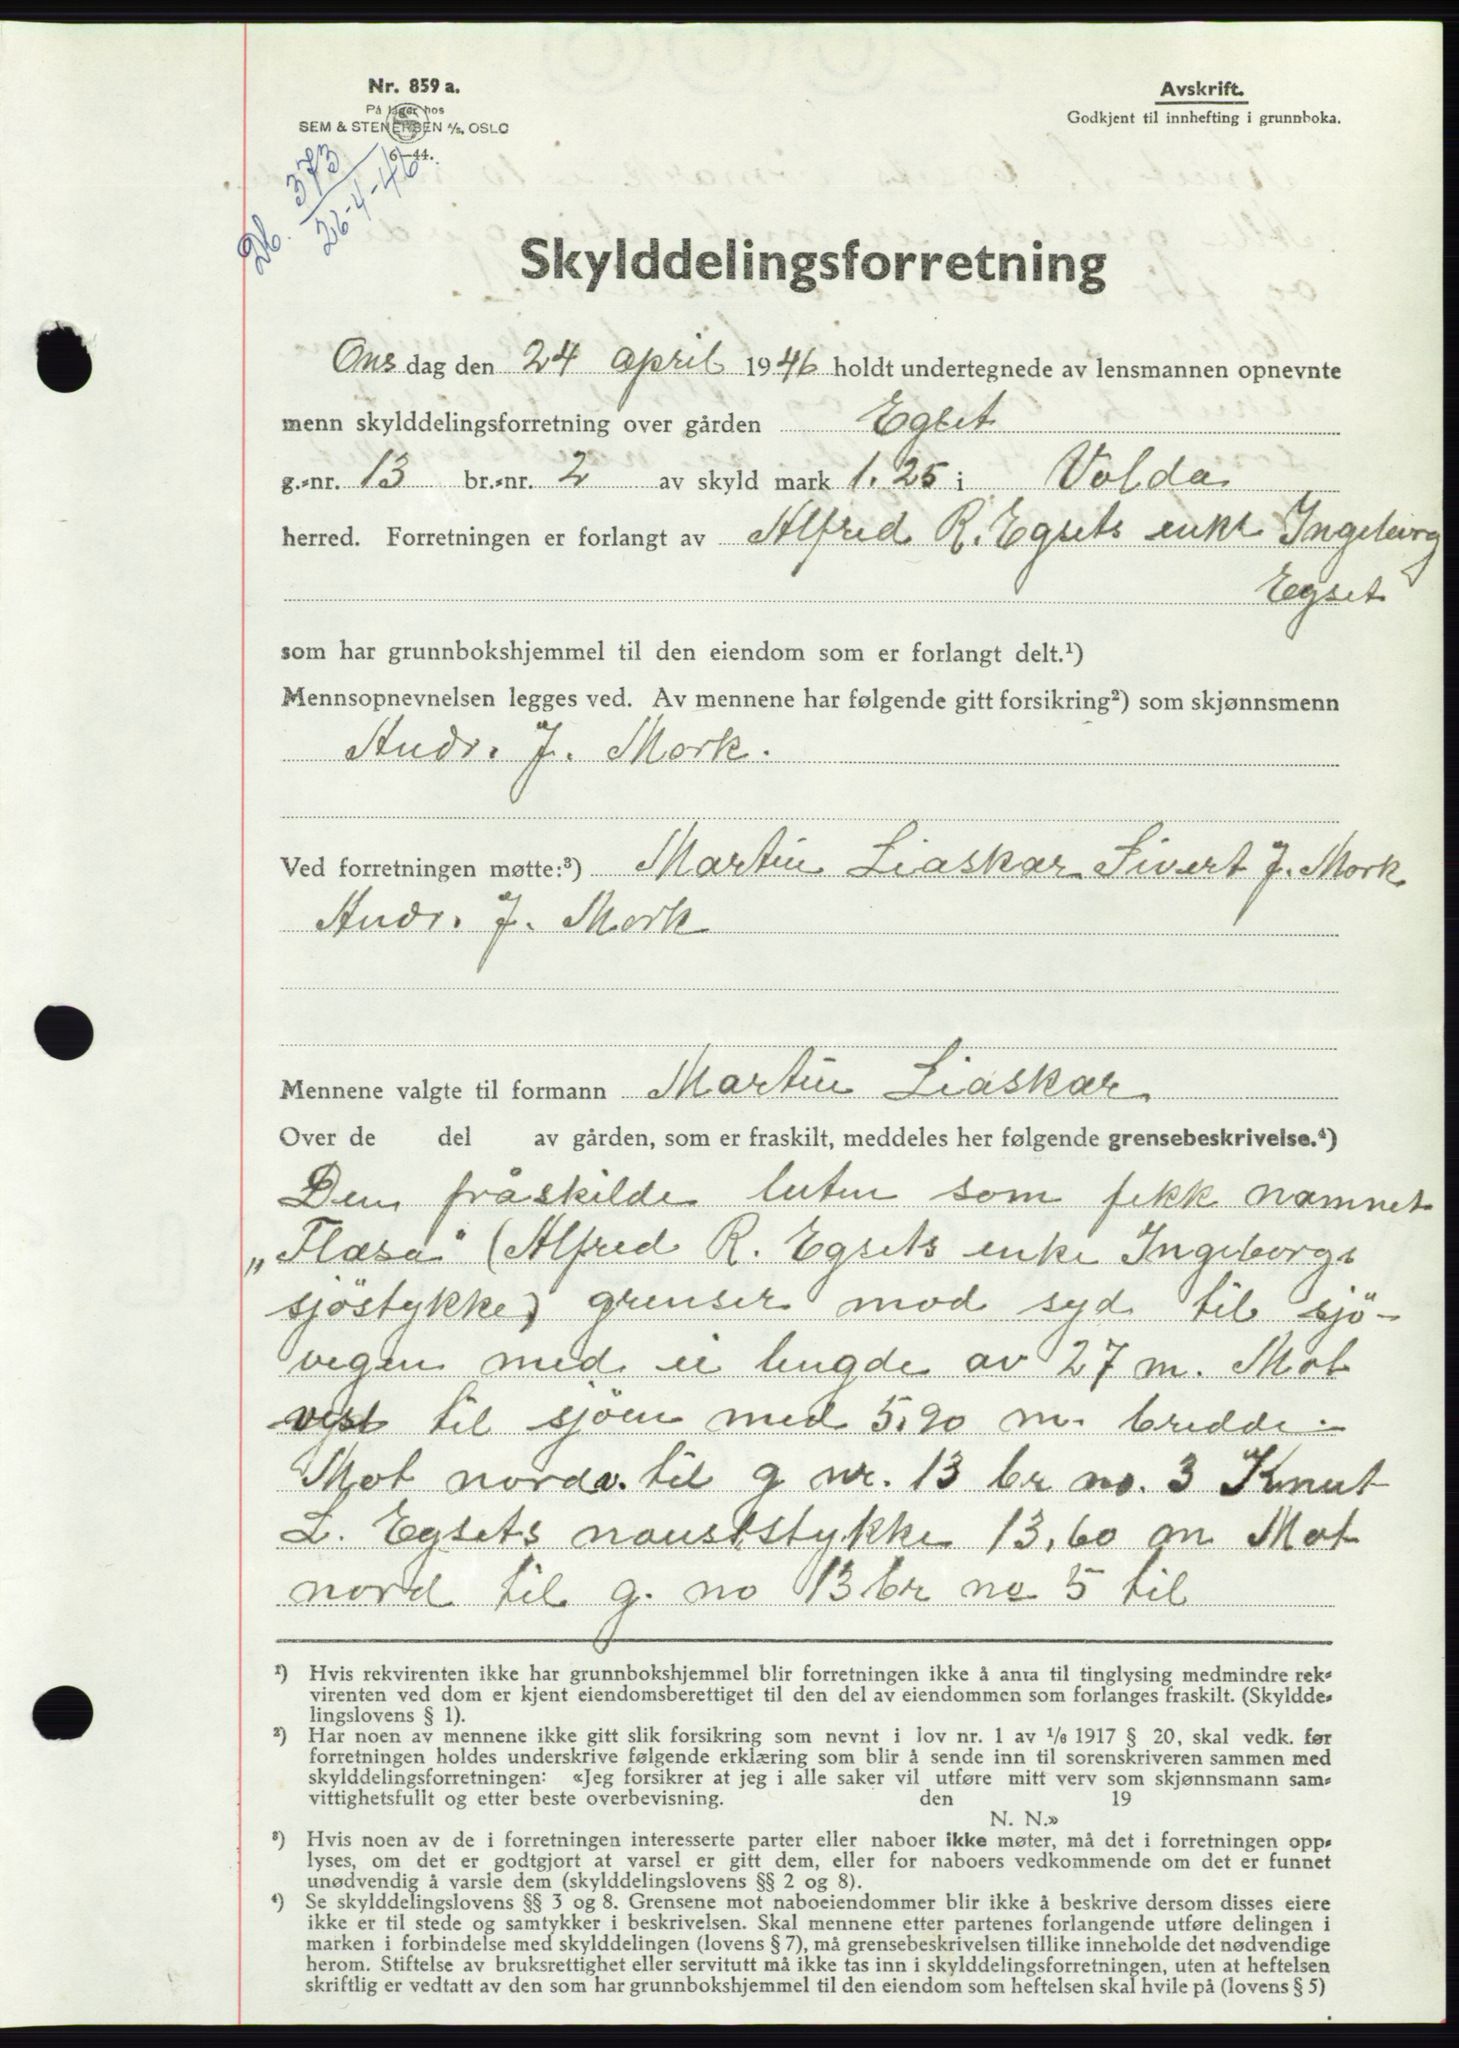 Nr. 859 a.
På lager hos
SEM & STENERSEN A/S, OSLO
6-44.
Avskrift.
Godkjent til innhefting i grunnboka.
Db. 373
26-4-46
Skylddelingsforretning
Onsdag den 24 april 1946 holdt undertegnede av lensmannen opnevnte
menn skylddelingsforretning over gården Egset
g.-nr. 13 br.-nr. 2 av skyld mark 1.25 i Volda
herred. Forretningen er forlangt av Alfred R. Egsets enke Ingeborg
Egset
som har grunnbokshjemmel til den eiendom som er forlangt delt.¹)
Mennsopnevnelsen legges ved. Av mennene har følgende gitt forsikring²) som skjønnsmenn
Andr. J. Mork.
Ved forretningen møtte:³) Martin Liaskar Sivert J. Mork
Andr. J. Mork
Mennene valgte til formann Martin Liaskar
Over de del av gården, som er fraskilt, meddeles her følgende grensebeskrivelse.⁴)
Den fråskilde luten som fekk namnet
„Flæsa" (Alfred R. Egsets enke Ingeborgs
sjöstykke) grenser mod syd til sjö-
vegen med ei lengde av 27 m. Mot
vest til sjöen med 5,90 m. bredde.
Mot nordv. til g nr. 13 br no. 3 Knut
L. Egsets nauststykke 13,60 m Mot
nord til g. no 13 br no 5 til
¹) Hvis rekvirenten ikke har grunnbokshjemmel blir forretningen ikke å anta til tinglysing medmindre rek-
virenten ved dom er kjent eiendomsberettiget til den del av eiendommen som forlanges fraskilt. (Skyldde-
lingslovens § 1).
²) Har noen av mennene ikke gitt slik forsikring som nevnt i lov nr. 1 av 1/6 1917 § 20, skal vedk. før
forretningen holdes underskrive følgende erklæring som blir å sende inn til sorenskriveren sammen med
skylddelingsforretningen: «Jeg forsikrer at jeg i alle saker vil utføre mitt verv som skjønnsmann sam-
vittighetsfullt og etter beste overbevisning. den 19
N. N.»
³) Hvis noen av de i forretningen interesserte parter eller naboer ikke møter, må det i forretningen opp-
lyses, om det er godtgjort at varsel er gitt dem, eller for naboers vedkommende om det er funnet
unødvendig å varsle dem (skylddelingslovens §§ 2 og 8).
⁴) Se skylddelingslovens §§ 3 og 8. Grensene mot naboeiendommer blir ikke å beskrive dersom disses eiere
ikke er til stede og samtykker i beskrivelsen. Skal mennene etter partenes forlangende utføre delingen i
marken i forbindelse med skylddelingen (lovens § 7), må grensebeskrivelsen tillike inneholde det nødvendige
herom. Stiftelse av bruksrettighet eller servitutt må ikke tas inn i skylddelingsforretningen, uten at heftelsen
skriftlig er vedtatt av den som har grunnbokshjemmel til den eiendom som heftelsen skal hvile på (lovens § 5)